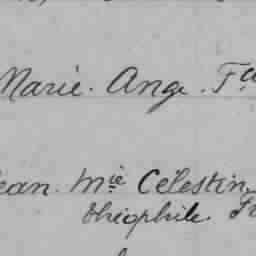 Marie. Ange. F
ean Mie Célestin
théophile. F